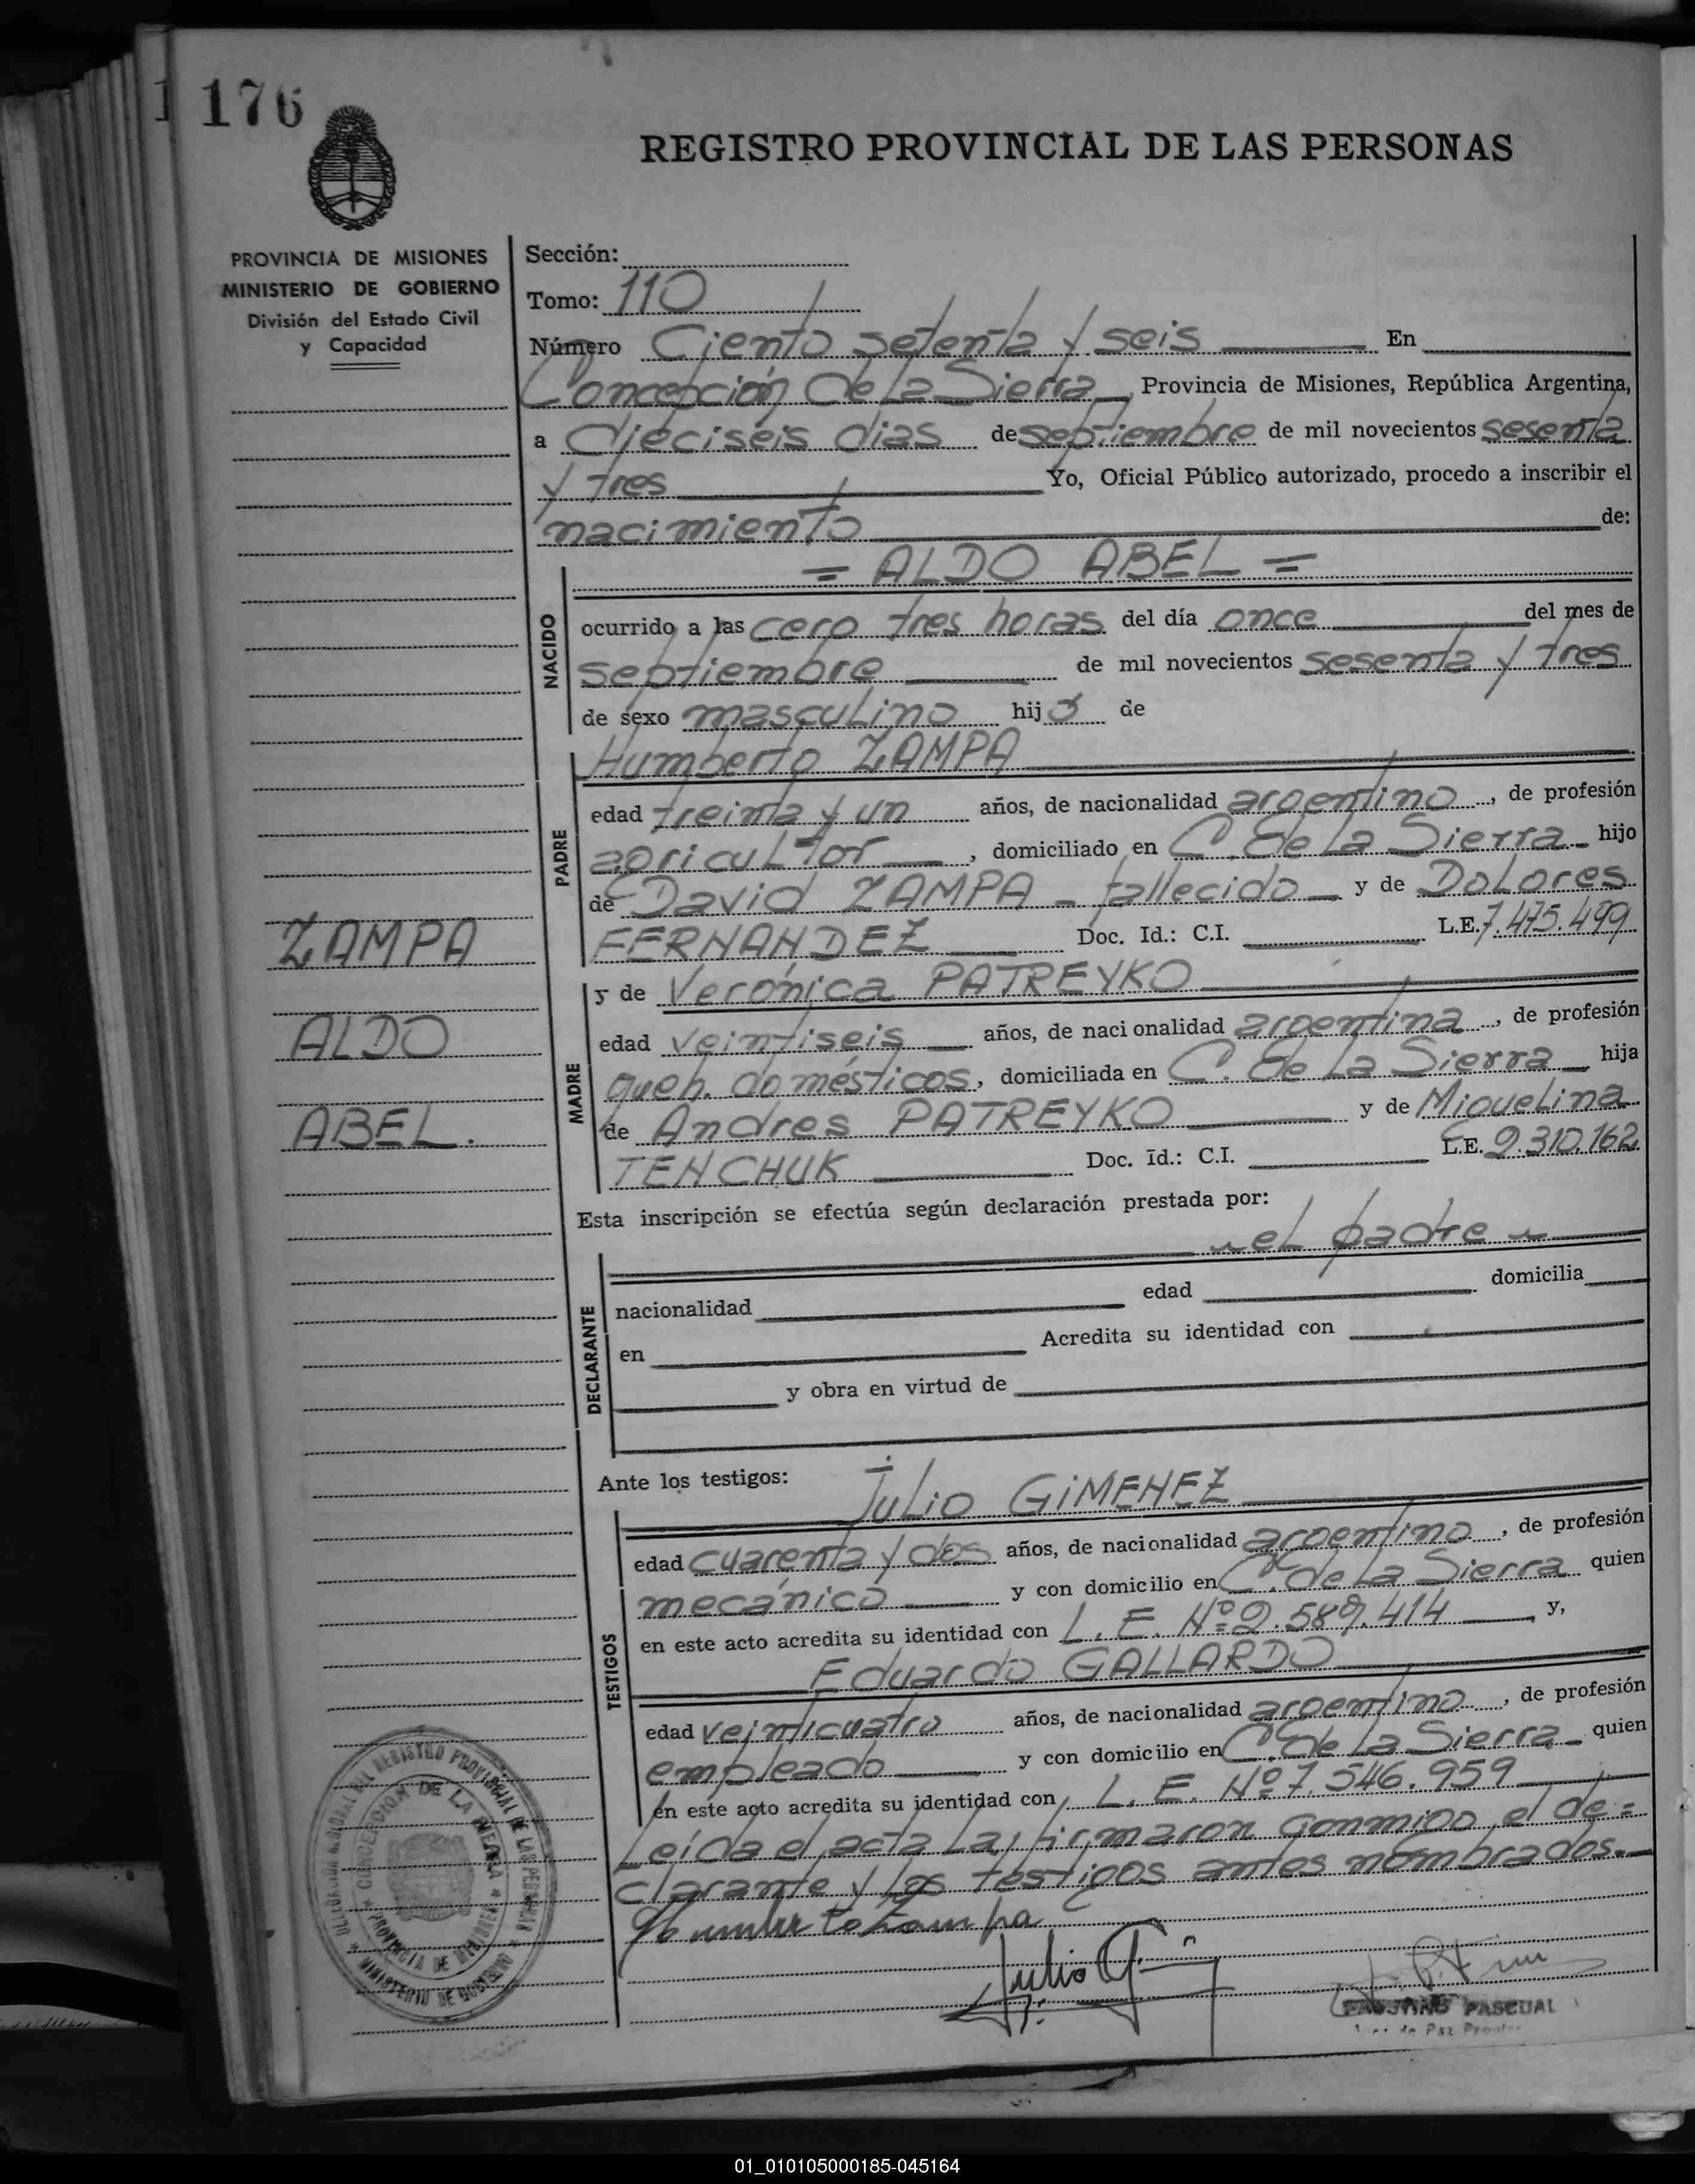 176
REGISTRO PROVINCIAL DE LAS PERSONAS
PROVINCIA DE MISIONES
MINISTERIO DE GOBIERNO
División del Estado Civil
y Capacidad
Sección:
Tomo: 110
Número Ciento setenta y seis En
Concepción de la Sierra, Provincia de Misiones, República Argentina,
a dieciseis dias de septiembre de mil novecientos sesenta
y tres Yo, Oficial Público autorizado, procedo a inscribir el
nacimiento de:
= ALDO ABEL =
NACIDO
ocurrido a las cero tres horas del día once del mes de
septiembre de mil novecientos sesenta y tres
de sexo masculino hijo de
PADRE
Humberto ZAMPA
edad treinta y un años, de nacionalidad argentino, de profesión
agricultor, domiciliado en C. de la Sierra hijo
de David ZAMPA - fallecido y de Dolores
FERNANDEZ Doc. Id.: C.I. L.E. 7.475.499
ZAMPA
ALDO
ABEL.
MADRE
y de Verónica PATREYKO
edad veintiseis años, de nacionalidad argentina, de profesión
queh. domésticos, domiciliada en C. de la Sierra hija
de Andres PATREYKO y de Miguelina
TENCHUK Doc. Id.: C.I. L.E. 9.310.162
Esta inscripción se efectúa según declaración prestada por:
el padre
DECLARANTE
nacionalidad edad domicilia
en Acredita su identidad con
y obra en virtud de
Ante los testigos: Julio GIMENEZ
TESTIGOS
edad cuarenta y dos años, de nacionalidad argentino, de profesión
mecánico y con domicilio en C. de la Sierra quien
en este acto acredita su identidad con L. E. Nº 2.589.414 y,
Eduardo GALLARDO
edad veinticuatro años, de nacionalidad argentino, de profesión
empleado y con domicilio en C. de la Sierra quien
en este acto acredita su identidad con L. E. Nº 7.546.959
Leída el acta la firmaron conmigo el de=
clarante y los testigos antes nombrados.
Humberto Zampa
Julio G.
FAUSTINO PASCUAL
DELEGACION REGIONAL DEL REGISTRO PROVINCIAL DE LAS PERSONAS
MINISTERIO DE GOBIERNO
CONCEPCION DE LA SIERRA
PROVINCIA DE MISIONES
01_010105000185-045164